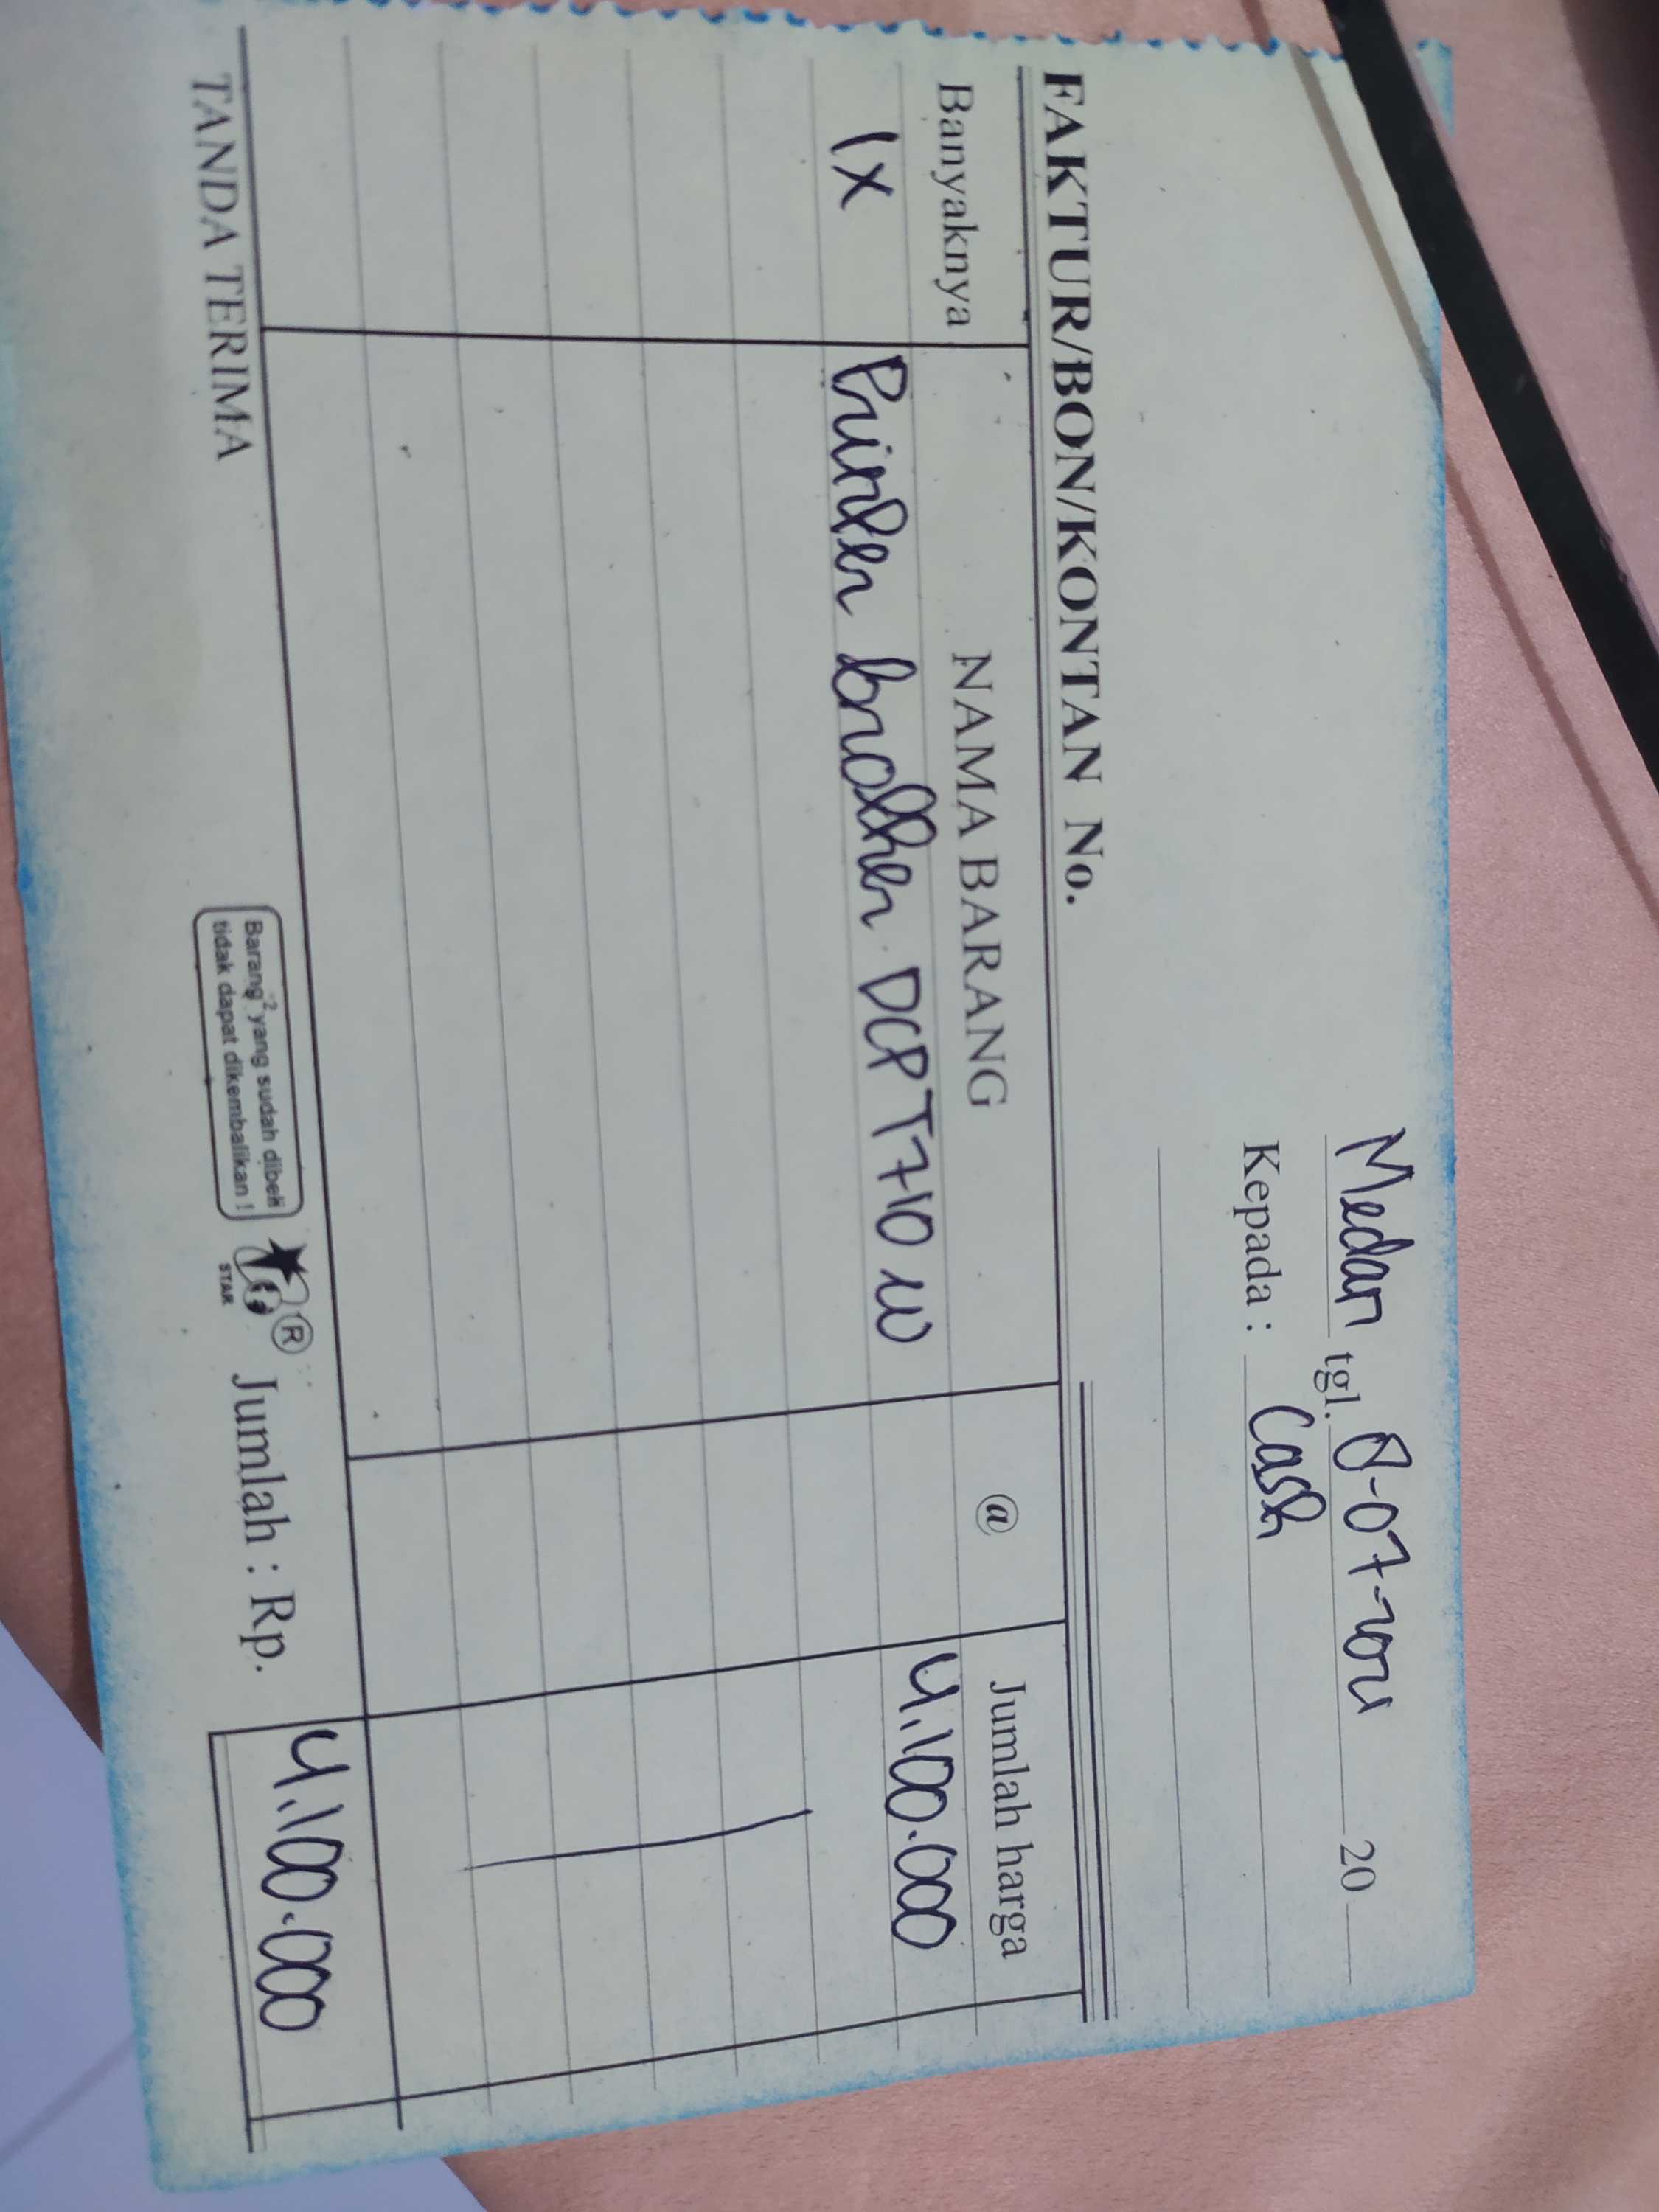 Medan tgl. 8-07-2021 20
Kepada : Cash
FAKTUR/BON/KONTAN No.
Banyaknya NAMA BARANG @ Jumlah harga
1x Printer brother DCP T710 W 4.100.000
TANDA TERIMA
Barang² yang sudah dibeli
tidak dapat dikembalikan !
STAR
®
Jumlah : Rp. 4.100.000